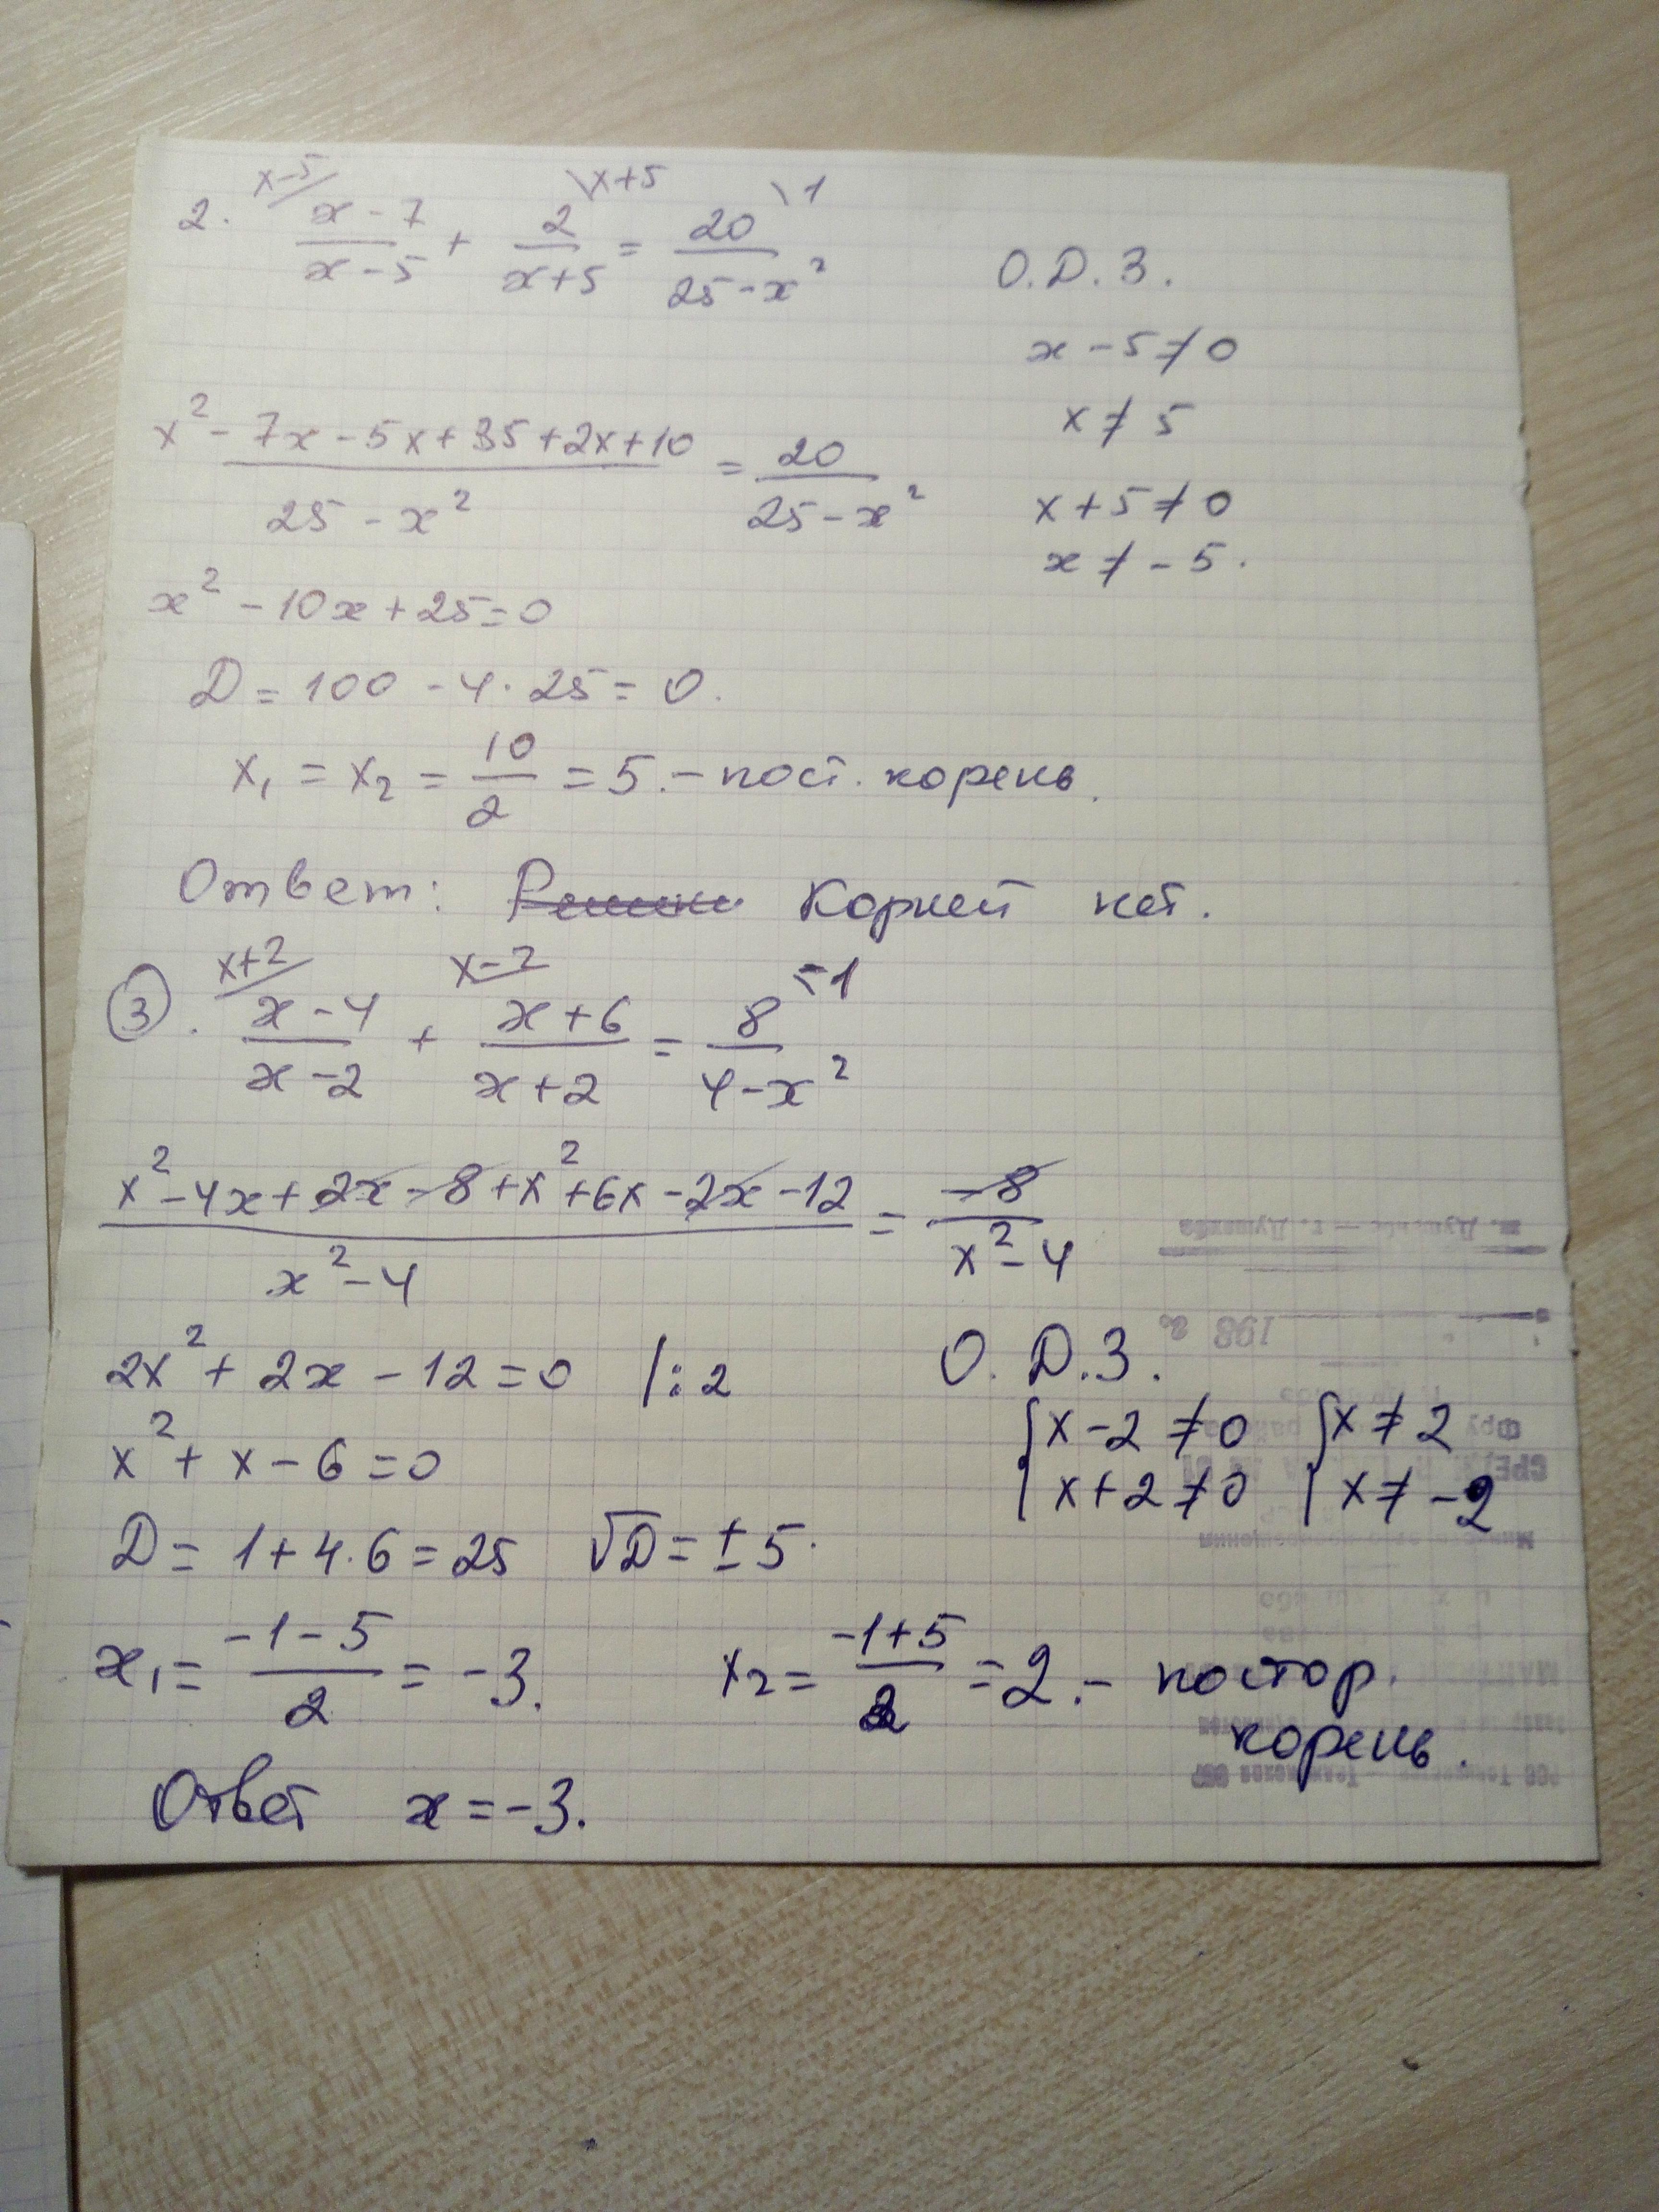 x-5 \x+5 \1
2. (x-7)/(x-5) + 2/(x+5) = 20/(25-x²)
О.Д.З.
x-5≠0
x≠5
x+5≠0
x≠-5.
(x²-7x-5x+35+2x+10)/(25-x²) = 20/(25-x²)
x²-10x+25=0
D=100-4·25=0.
x₁=x₂=10/2=5.-пост. корень.
Ответ: Корней нет.
x+2 x-2 -1
3. (x-4)/(x-2) + (x+6)/(x+2) = 8/(4-x²)
(x²-4x+2x-8+x²+6x-2x-12)/(x²-4) = -8/(x²-4)
2x²+2x-12=0 /:2
x²+x-6=0
D=1+4·6=25 √D=±5.
О.Д.З.
{x-2≠0 {x≠2
{x+2≠0 {x≠-2
x₁=(-1-5)/2=-3. x₂=(-1+5)/2=2.- постор.
корень.
Ответ x=-3.